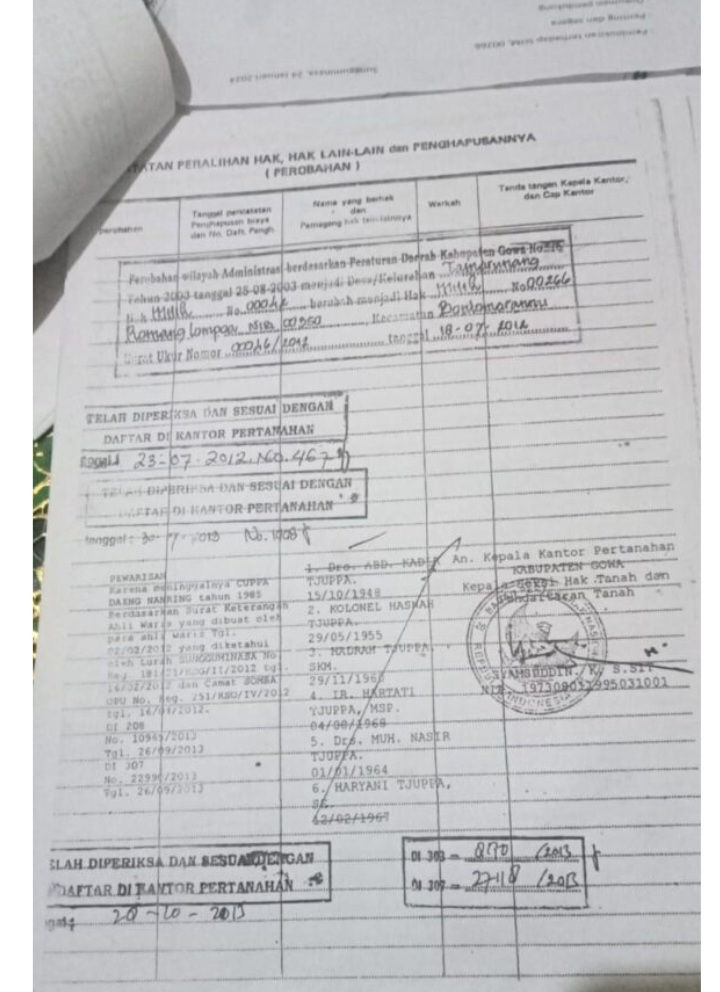 Sungguminasa, 24 Januari 2024
TATAN PERALIHAN HAK, HAK LAIN-LAIN dan PENGHAPUSANNYA
( PEROBAHAN )
Perubahan
Tanggal pencatatan
Penghapusan biaya
dan No. Daft. Pengh.
Nama yang berhak
dan
Pemegang hak lain-lainnya
Warkah
Tanda tangan Kepala Kantor,
dan Cap Kantor
Perobahan wilayah Administrasi berdasarkan Peraturan Daerah Kabupaten Gowa No.
Tahun 2003 tanggal 25-08-2003 menjadi Desa/Kelurahan Tamarunang
Hak Milik No. 00042 berubah menjadi Hak Milik No 00266
Romang lompoa NIB 00950 Kecamatan Bontomarannu
Surat Ukur Nomor 00046/2012 tanggal 18-07-2012
TELAH DIPERIKSA DAN SESUAI DENGAN
DAFTAR DI KANTOR PERTANAHAN
23-07-2012. No. 467
TELAH DIPERIKSA DAN SESUAI DENGAN
DAFTAR DI KANTOR PERTANAHAN
tanggal : 30-7-2013 No. 1908
PEWARISAN
Karena meninggalnya CUPPA
DAENG NANRING tahun 1985
Berdasarkan Surat Keterangan
Ahli Waris yang dibuat oleh
para ahli waris Tgl.
02/02/2012 yang diketahui
oleh Lurah SUNGGUMINASA No
Reg. 181/21/KSG/II/2012 tgl.
16/02/2012 dan Camat SOMBA
OPU No. Reg. 251/KSO/IV/2012
tgl. 16/04/2012.
DI 208
No. 10945/2013
Tgl. 26/09/2013
DI 307
No. 22990/2013
Tgl. 26/09/2013
1. Drs. ABD. KADIR
TJUPPA.
15/10/1948
2. KOLONEL HASNAH
TJUPPA.
29/05/1955
3. HADRAH TJUPPA,
SKM.
29/11/1960
4. IR. HARTATI
TJUPPA, MSP.
04/08/1968
5. Drs. MUH. NASIR
TJUPPA.
01/01/1964
6. HARYANI TJUPPA,
SE.
12/02/1967
An. Kepala Kantor Pertanahan
KABUPATEN GOWA
Kepala Seksi Hak Tanah dan
Pendaftaran Tanah
SYAMSUDDIN. K, S.SIT
NIP. 197309031995031001
TELAH DIPERIKSA DAN SESUAI DENGAN
DAFTAR DI KANTOR PERTANAHAN
28-10-2013
DI 303 = 8170 /2013
DI 307 = 27118 /2013